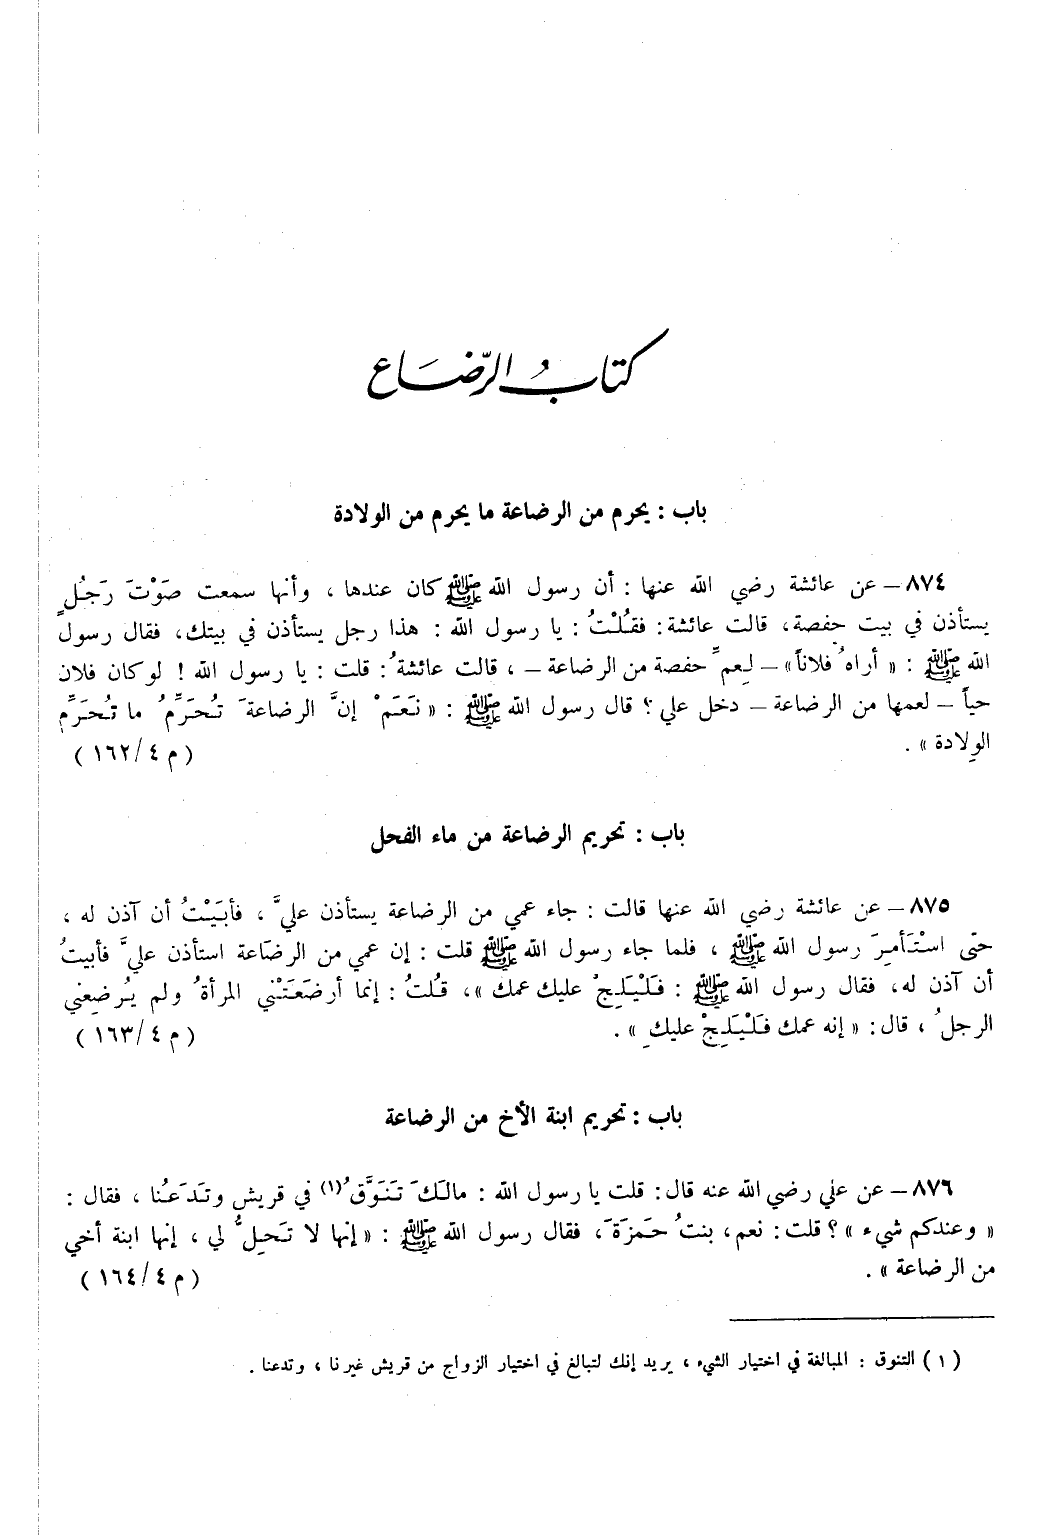 كتابُ الرّضَاع
باب : يحرم من الرضاعة ما يحرم من الولادة
٨٧٤ – عن عائشة رضي الله عنها : أن رسول الله ﷺ كان عندها ، وأنها سمعت صَوْتَ رَجُلٍ
يستأذن في بيت حفصة، قالت عائشة: فقُلْتُ : يا رسول الله : هذا رجل يستأذن في بيتك، فقال رسول
الله ﷺ : « أراهُ فلاناً » – لِعمِّ حفصة من الرضاعة – ، قالت عائشةُ : قلت : يا رسول الله ! لو كان فلان
حياً – لعمها من الرضاعة – دخل علي ؟ قال رسول الله ﷺ : « نَعَمْ إنَّ الرضاعةَ تُحَرِّمُ ما تُحَرِّم
الوِلادة » . ( م ٤/ ١٦٢ )
باب : تحريم الرضاعة من ماء الفحل
٨٧٥ – عن عائشة رضي الله عنها قالت : جاء عمي من الرضاعة يستأذن عليَّ ، فأبَيْتُ أن آذن له ،
حتى اسْتَأمِرَ رسول الله ﷺ ، فلما جاء رسول الله ﷺ قلت : إن عمي من الرضَاعة استأذن عليَّ فأبيتُ
أن آذن له، فقال رسول الله ﷺ : فَلْيَلِجْ عليك عمك »، قُلتُ : إنما أرضَعَتْني المرأةُ ولم يُرضِعني
الرجلُ ، قال : « إنه عمك فَلْيَلِجْ عليكِ » . ( م ٤/ ١٦٣ )
باب : تحريم ابنة الأخ من الرضاعة
٨٧٦ – عن علي رضي الله عنه قال : قلت يا رسول الله : مالَكَ تَنَوَّقُ(١) في قريش وتَدَعُنا ، فقال :
« وعندكم شيء » ؟ قلت : نعم، بنتُ حَمزَةَ، فقال رسول الله ﷺ : « إنها لا تَحِلُّ لي ، إنها ابنة أخي
من الرضاعة » . ( م ٤/ ١٦٤ )
( ١ ) التنوق : المبالغة في اختيار الشيء ، يريد إنك لتبالغ في اختيار الزواج من قريش غيرنا ، وتدعنا .